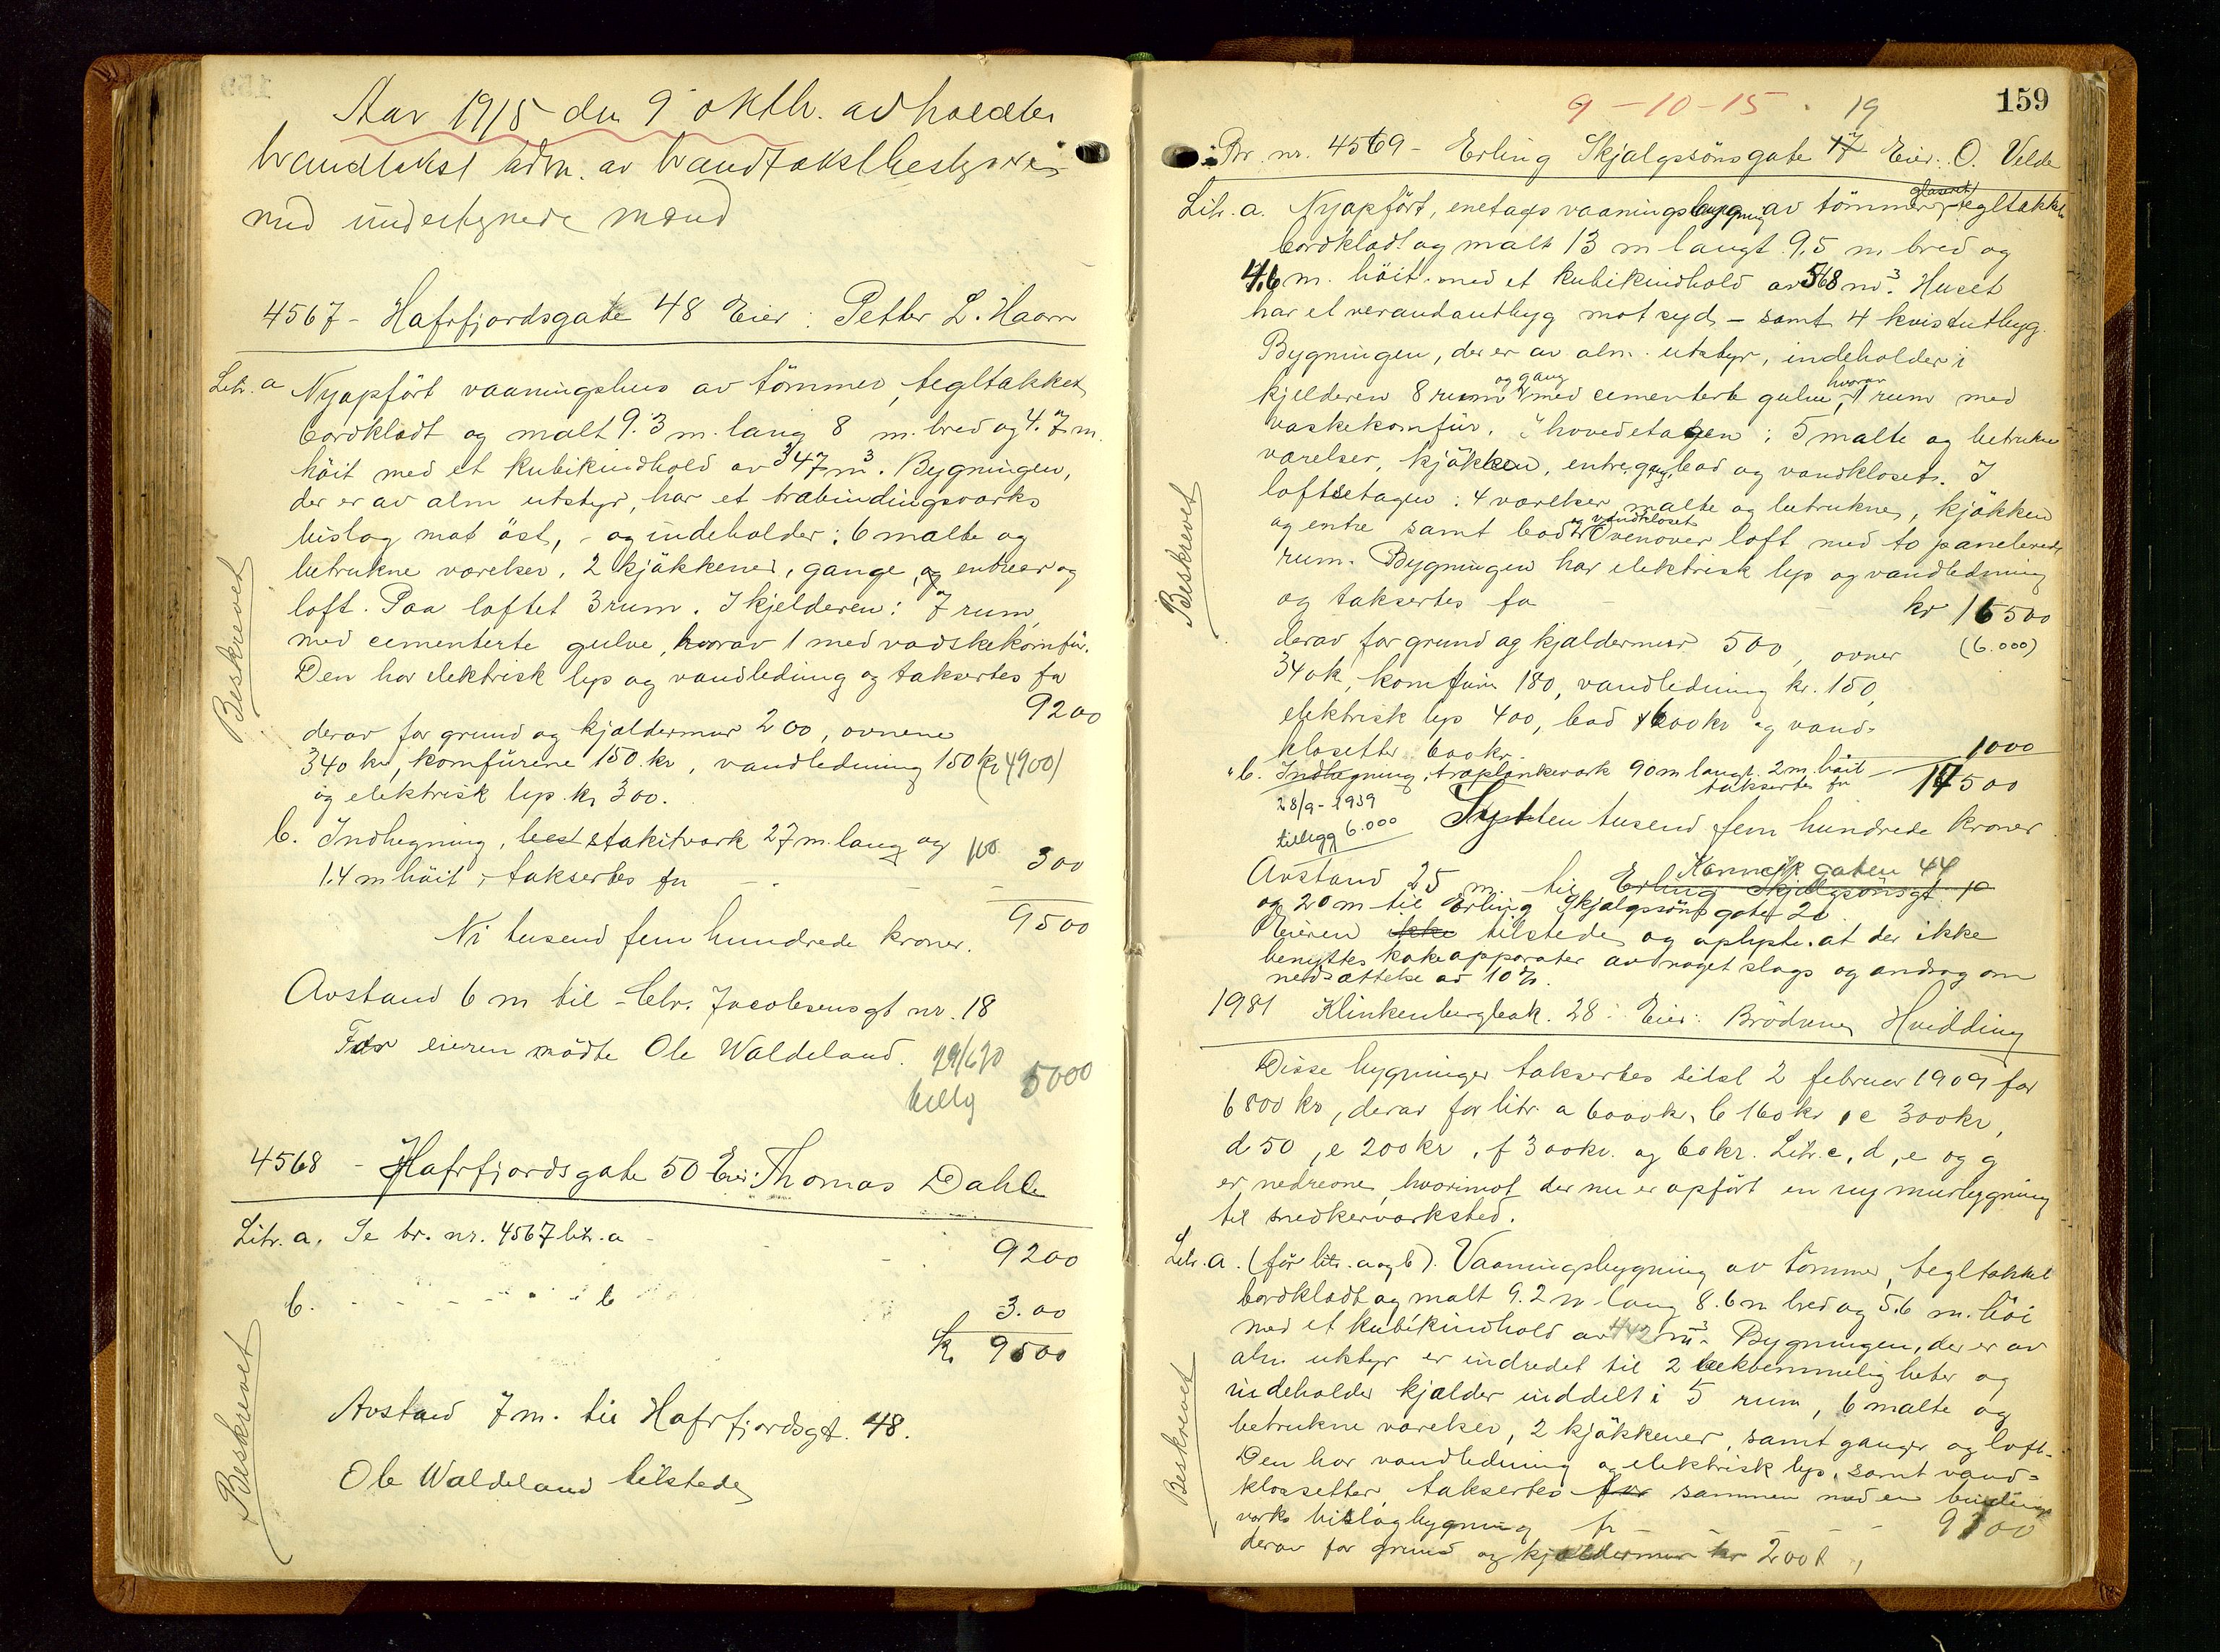 Aar 1915 den 9 oktbr. avholdtes
brandtakst adm. av brandtakstbestyreren
med undertegnede mænd
4567 - Hafrfjordsgate 48 Eier: Petter L. Haarr
Litr. a Nyopført vaaningshus av tømmer, tegltækket
bordklædt og malt 9.3 m. lang 8 m. bred og 4.7 m.
høit med et kubikindhold av 347 m³. Bygningen,
der er av alm utstyr, har et træbindingsverks
bislag mot øst, - og indeholder: 6 malte og
betrukne værelser, 2 kjøkkener, gange, og entreer og
loft. Paa loftet 3 rum. I kjelderen: 7 rum
med cementerte gulve, hvorav 1 med vadskekomfür.
Den har elektrisk lys og vandledning og taksertes for
9200
derav for grund og kjældermur 200, ovnene
340 kr, komfürene 150 kr, vandledning 150 (kr 4900)
og elektrisk lys kr 300.
b. Indhegning, stakitverk 27 m. lang og 100
1.4 m høit, taksertes for - - - 300
9500
Ni tusend fem hundrede kroner.
Avstand 6 m til Chr. Jacobsensgt nr. 18
For eieren mødte Ole Waldeland. 29/6 70
tillg 5000
4568 - Hafrfjordsgate 50 Eier: Thomas Dahle
Litr. a. Se br. nr. 4567 litr. a - - - 9200
b. - - - - - b 3.00
Kr 9500
Avstand 7 m. til Hafrfjordsgt. 48.
Ole Waldeland tilstede
Beskrevet
Beskrevet
159
9-10-15. 19
Br. nr. 4569 - Erling Skjalgssønsgate 17 Eier: O. Velde
Litr. a. Nyopført, enetags vaaningsbygning av tømmer, glaseret tegltækket
bordklædt og malt 13 m langt 9.5 m bred og
4.6 m. høit med et kubikindhold av 568 m³. Huset
har et verandautbyg mot syd, - samt 4 kvistutbyg.
Bygningen, der er av alm. utstyr, indeholder i
kjelderen 8 rum og gang med cementerte gulve, hvorav 1 rum med
vaskekomfür. I hovedetagen: 5 malte og betrukne
værelser, kjøkken, entre, gang, bad og vandkloset. I
loftsetagen: 4 værelser malte og betrukne, kjøkken
og entre samt bad og vandkloset. Ovenover loft med to panelerede
rum. Bygningen har elektrisk lys og vandledning
og taksertes for - - kr 16500
derav for grund og kjældermur 500, ovner (6.000)
340 kr, komfürer 180, vandledning kr. 150,
elektrisk lys 400, bad 600 kr og vand-
klosetter 600 kr.
" b. Indhegning, træplankeverk 90 m langt. 2 m. høit 1000
taksertes for 17500
28/9-1939
tillegg 6.000
Sytten tusend fem hundrede kroner
Avstand 25 m. til Erling Skjalgsønsgt. 10 Kannikgaten 44
og 20 m til Erling Skjalgssøns gate 20
Eieren ikke tilstede og oplyste at der ikke
benyttes kokeapparater av noget slags og androg om
nedsættelse av 10%.
1981 Klinkenbergbak. 28: Eier: Brødrene Hvidding
Disse bygninger taksertes sidst 2 februar 1909 for
6800 kr, derav for litr. a 6000 kr, b 160 kr, c 300 kr,
d 50, e 200 kr, f 300 kr. og 60 kr. Litr. c, d, e og g
er nedrevne, hvorimot der nu er opført en ny murbygning
til snedkerverksted.
Litr. a. (før litr. a og b). Vaaningsbygning av tømmer, tegltækket
bordklædt og malt 9.2 m lang 8.6 m bred og 5.6 m. høi
med et kubikindhold av 442 m³. Bygningen, der er av
alm. utstyr er indredet til 2 bekvemmeligheter og
indeholder kjælder inddelt i 5 rum, 6 malte og
betrukne værelser, 2 kjøkkener, samt gange og loft.
Den har vandledning og elektrisk lys, samt vand-
klosetter, taksertes for sammen med en bindings
verks bislagbygning for - - - 9100
derav for grund og kjældermur kr 200,
Beskrevet
Beskrevet